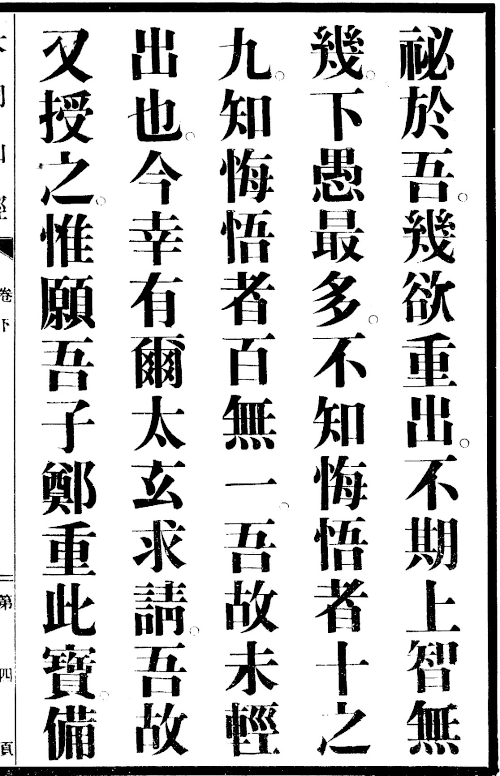 祕於吾。幾欲重出。不期上智無
幾。下愚最多。不知悔悟者十之
九。知悔悟者百無一。吾故未輕
出也。今幸有爾太玄求請。吾故
又授之。惟願吾子鄭重此寶。備
卷下
第四頁